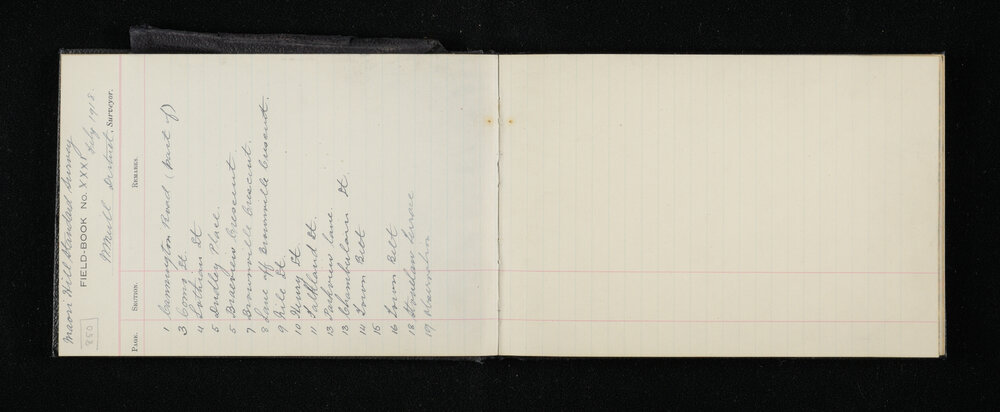 Maori Hill Standard Survey
250
FIELD-BOOK NO. XXXI July 1918.
District, Surveyor.
PAGE. SECTION. REMARKS.
1 Cannington Road (part of)
3 Como St.
4 Lothian St
5 Dudley Place.
5 Braeview Crescent
7 Brownville Crescent.
8 Lane off Brownville Crescent.
9 Nile St.
10 Henry St.
11 Falkland St.
13 lane.
13 Chamberlain St.
14 Town Belt
15
16 Town Belt
18 Terrace
19